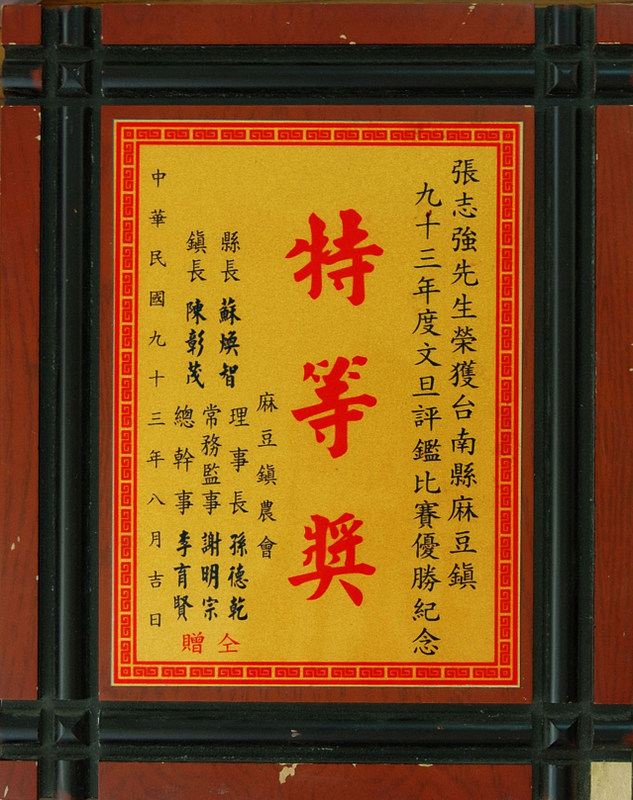 張志強先生榮獲台南縣麻豆鎮
九十三年度文旦評鑑比賽優勝紀念
特等獎
麻豆鎮農會
縣長 蘇煥智
理事長 孫德乾
鎮長 陳彰茂
常務監事 謝明宗
總幹事 李育賢
仝贈
中華民國九十三年八月吉日